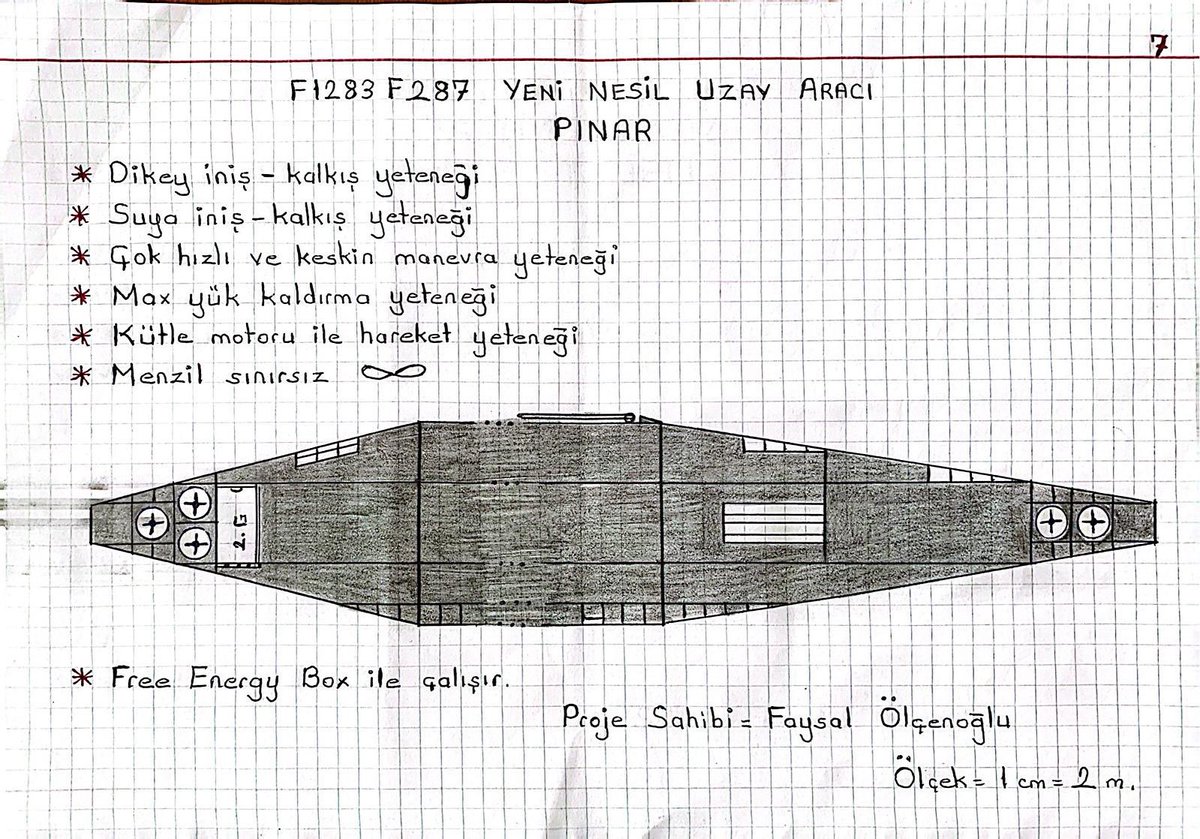 7
F1283 F287 YENİ NESİL UZAY ARACI
PINAR
* Dikey iniş - kalkış yeteneği
* Suya iniş - kalkış yeteneği
* Çok hızlı ve keskin manevra yeteneği
* Max yük kaldırma yeteneği
* Kütle motoru ile hareket yeteneği
* Menzil sınırsız ∞
2.G
* Free Energy Box ile çalışır.
Proje Sahibi = Faysal Ölçenoğlu
Ölçek = 1 cm = 2 m.